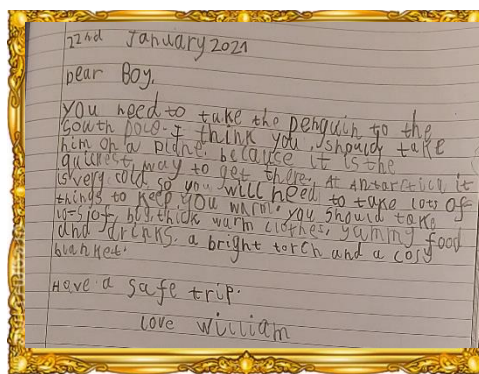 22nd January 2021
Dear Boy,
You need to take the penguin to the
South Pole. I think you should take
him on a plane, because it is the
quickest way to get there. At Antarctica it
is very cold so you will need to take lots of
things to keep you warm. You should take
lots of big, thick warm clothes, yummy food
and drinks, a bright torch and a cosy
blanket.
Have a safe trip.
Love William